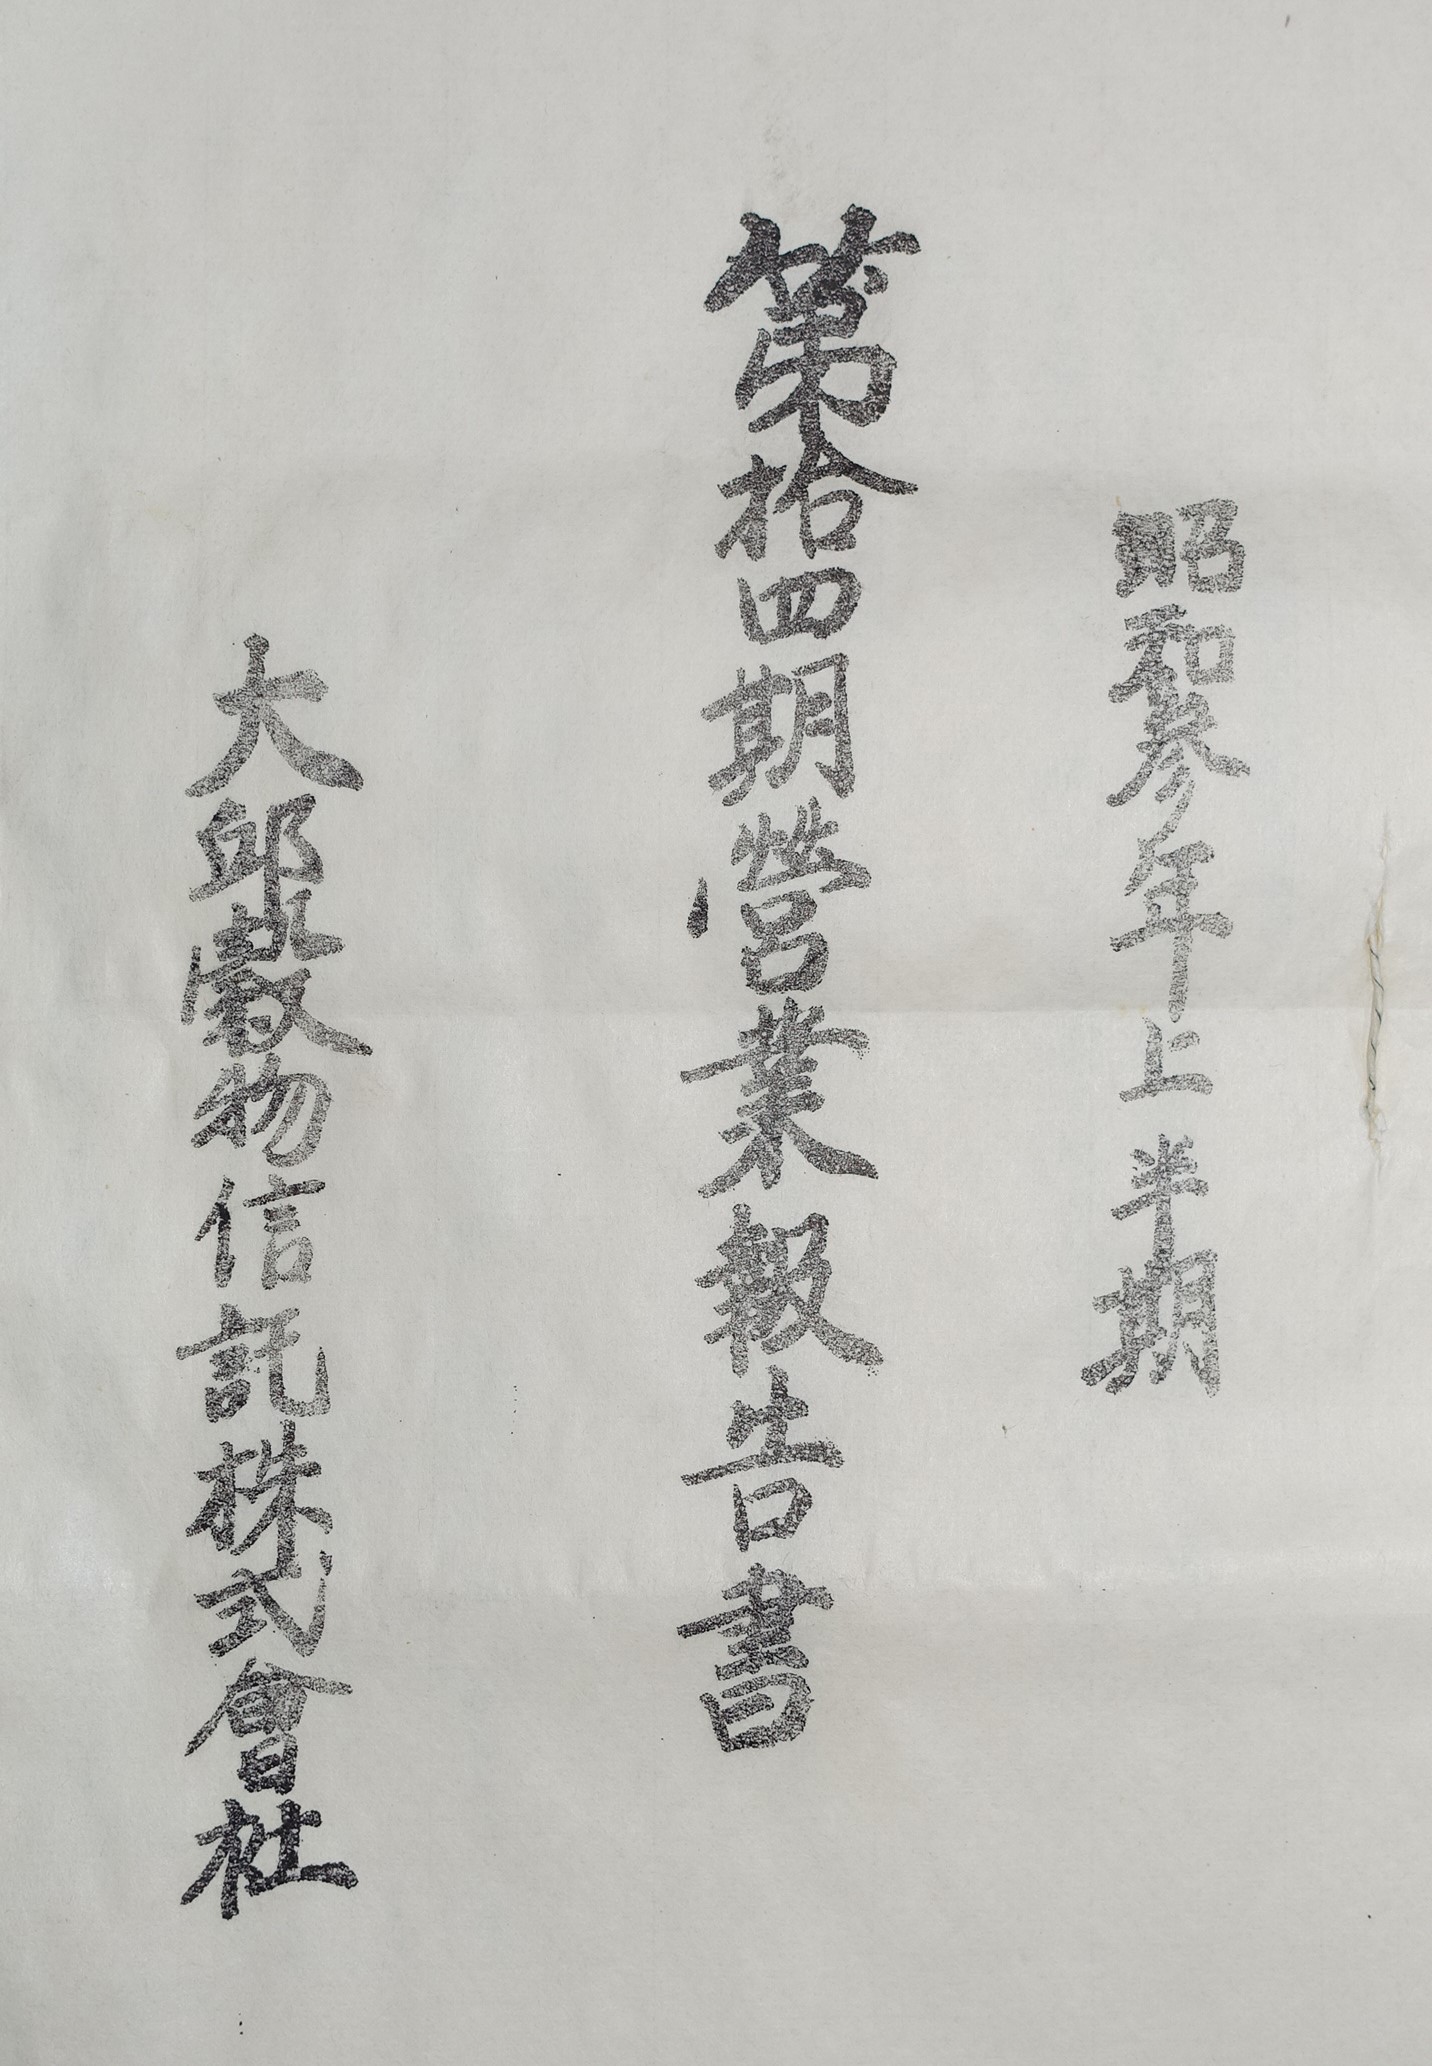 昭和参年上半期
第拾四期營業報告書
大邱穀物信託株式會社